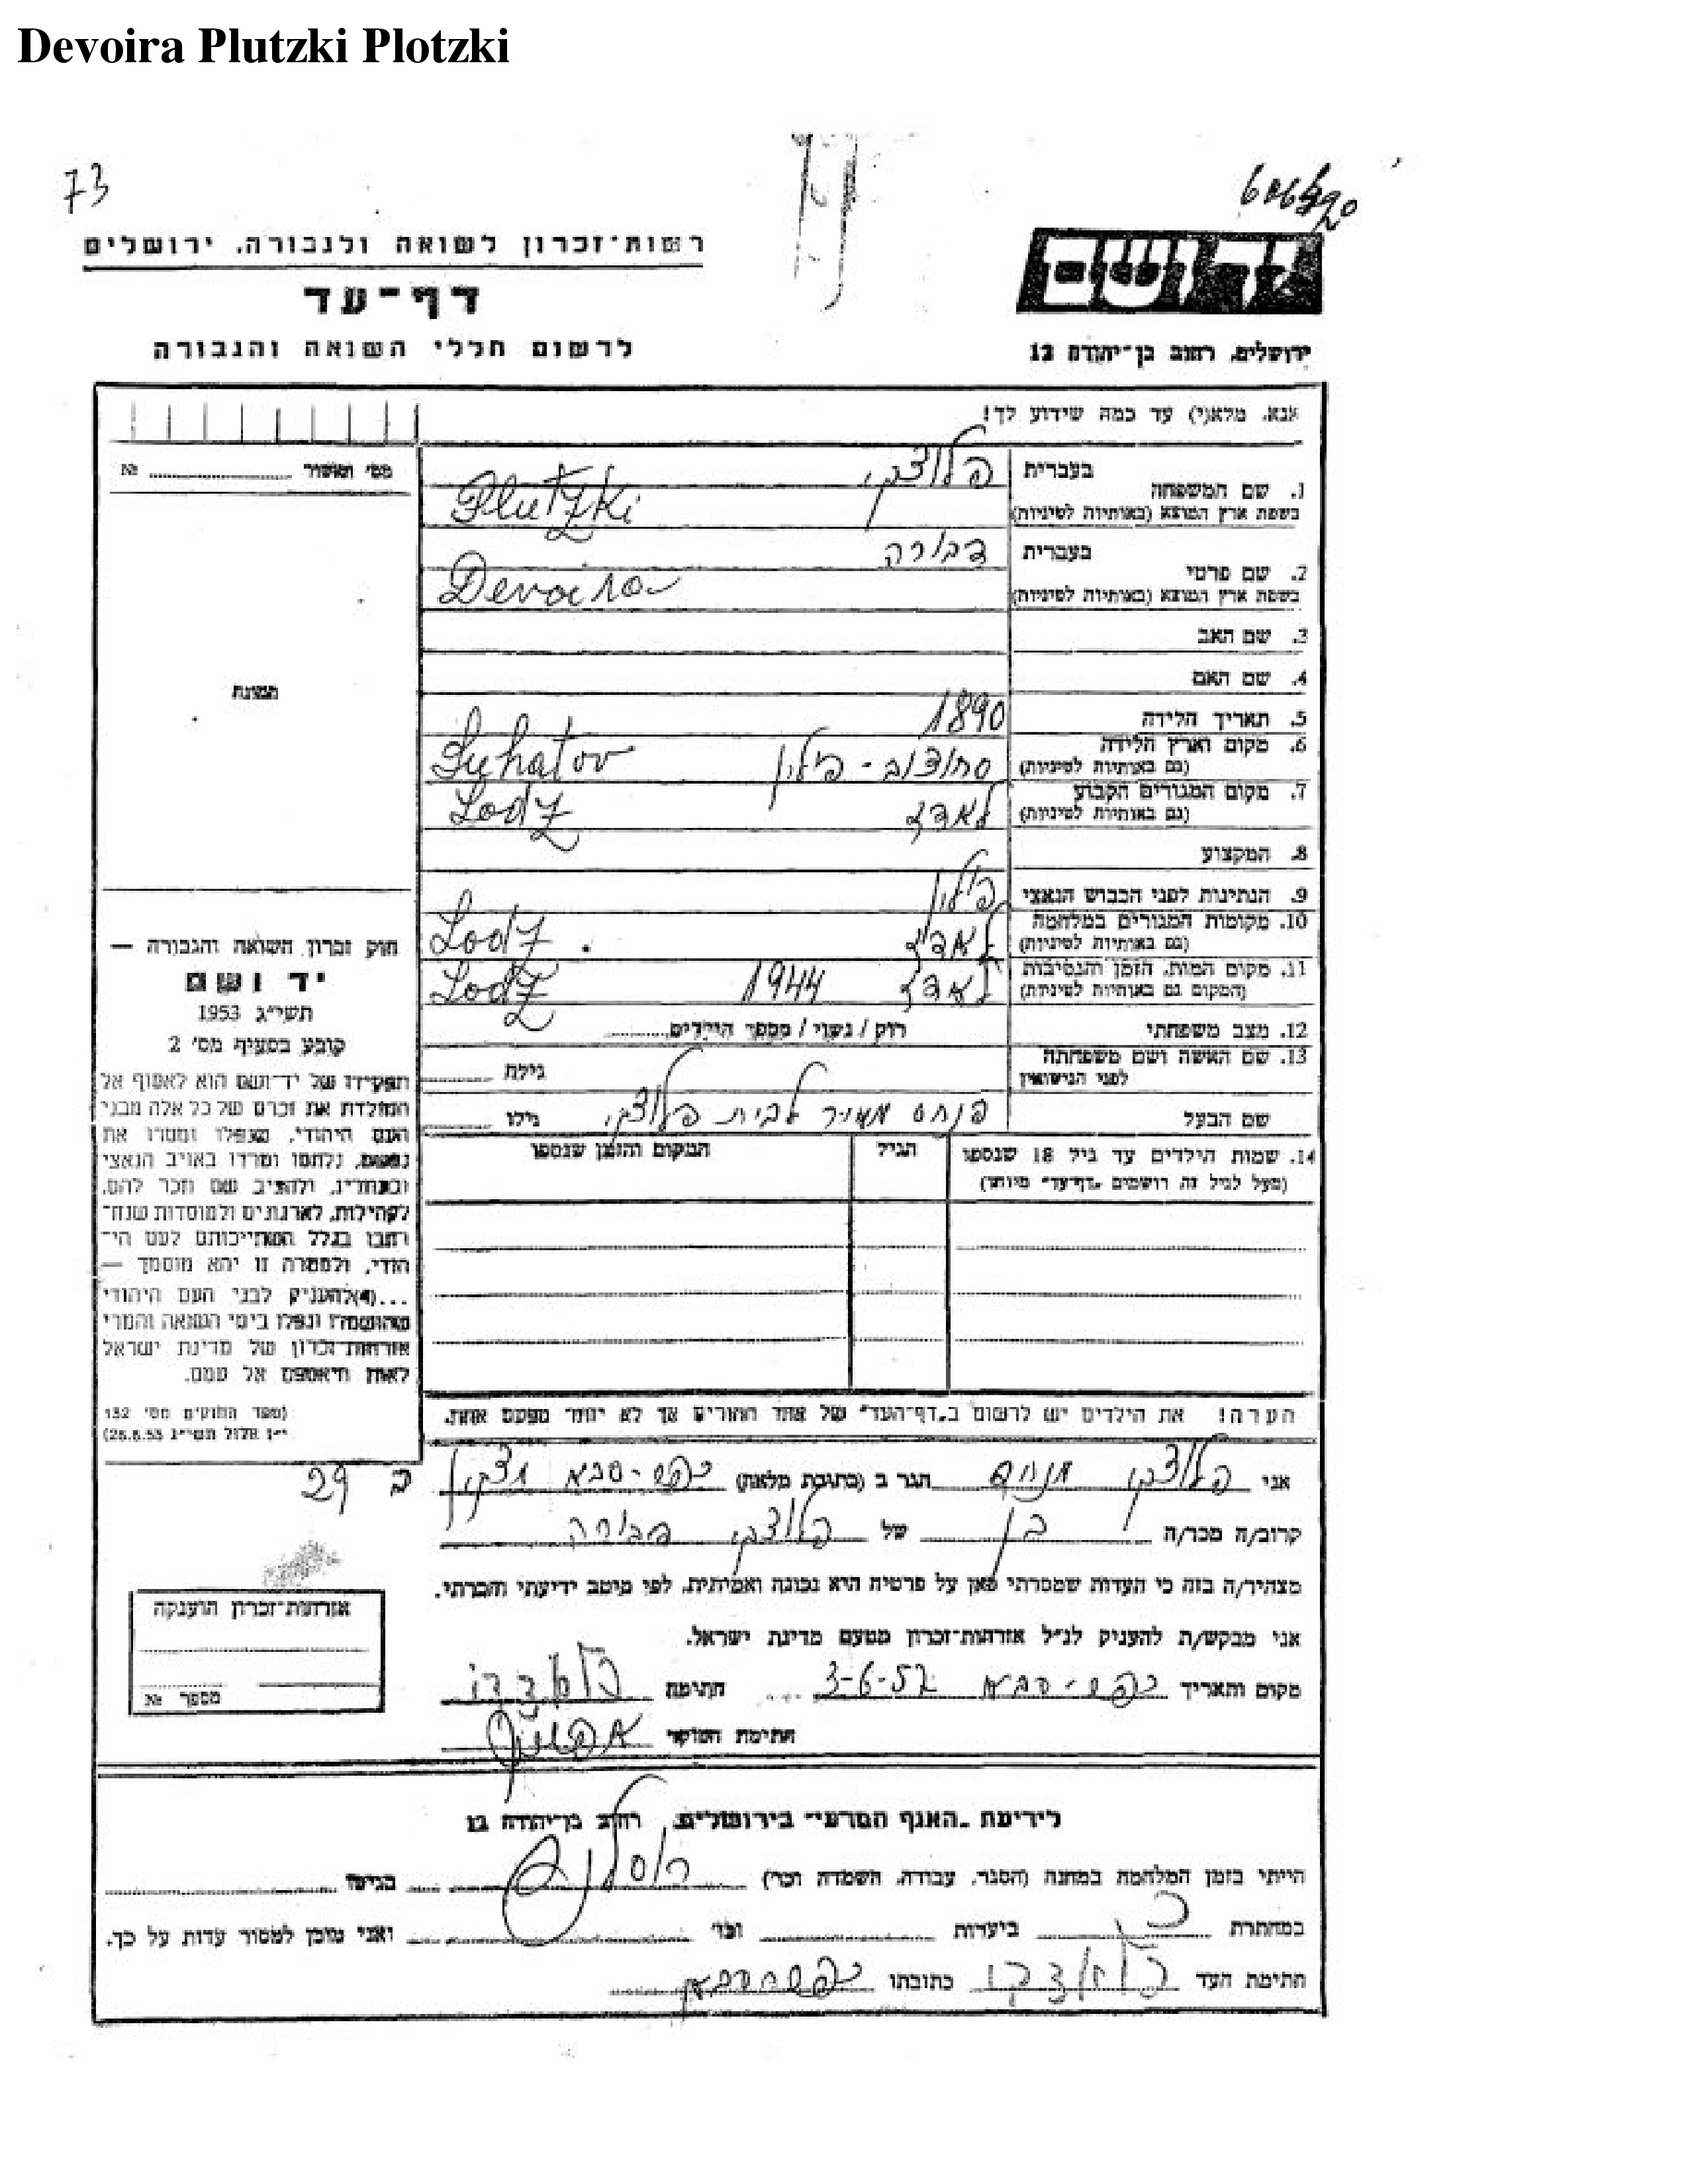 Devoira Plutzki Plotzki
73
רשות־זכרון לשואה ולגבורה, ירושלים
דף־עד
לרשום חללי השואה והגבורה
יד ושם
ירושלים, רחוב בן־יהודה 12
אנא, מלא(י) עד כמה שידוע לך!
מס' האשור № 
1. שם המשפחה
בעברית פלוצקי
בשפת ארץ המוצא (באותיות לטיניות) Plutzki
2. שם פרטי
בעברית דבורה
בשפת ארץ המוצא (באותיות לטיניות) Devoira
3. שם האב
4. שם האם
5. תאריך הלידה 1890
6. מקום וארץ הלידה
(גם באותיות לטיניות) פולין Suhatov
7. מקום המגורים הקבוע
(גם באותיות לטיניות) לאדז Lodz
8. המקצוע
9. הנתינות לפני הכבוש הנאצי פולין
10. מקומות המגורים במלחמה
(גם באותיות לטיניות) לאדז Lodz
11. מקום המות, הזמן והנסיבות
(המקום גם באותיות לטיניות) לאדז 1944 Lodz
12. מצב משפחתי רווק / נשוי / מספר הילדים
13. שם האשה ושם משפחתה
לפני הנישואין גילה
שם הבעל פנחס מאיר לבית פלוצקי גילו
14. שמות הילדים עד גיל 18 שנספו
(מעל לגיל זה רושמים „דף־עד" מיוחד)
הגיל
המקום והזמן שנספו
הערה! את הילדים יש לרשום ב„דף־העד" של אחד ההורים אך לא יותר מפעם אחת.
תמונה
חוק זכרון השואה והגבורה —
יד ושם
תשי"ג 1953
קובע בסעיף מס' 2
תפקידו של יד־ושם הוא לאסוף אל
המולדת את זכרם של כל אלה מבני
העם היהודי, שנפלו ומסרו את
נפשם, נלחמו ומרדו באויב הנאצי
ובעוזריו, ולהציב שם וזכר להם,
לקהילות, לארגונים ולמוסדות שנח־
רבו בגלל השתייכותם לעם הי־
הודי, ולמטרה זו יהא מוסמך —
...(4) להעניק לבני העם היהודי
שהושמדו ונפלו בימי השואה והמרי
אזרחות־זכרון של מדינת ישראל
לאות היאספם אל עמם.
(ספר החוקים מס' 132
י"ז אלול תשי"ג 28.8.53)
29 ב
אני פלוצקי הגר ב (כתובת מלאה) כפר-סבא
קרוב/ה מכר/ה בן של פלוצקי דבורה
מצהיר/ה בזה כי העדות שמסרתי כאן על פרטיה היא נכונה ואמיתית, לפי מיטב ידיעתי והכרתי.
אני מבקש/ת להעניק לנ"ל אזרחות־זכרון מטעם מדינת ישראל.
מקום ותאריך כפר-סבא 3-6-57 חתימה
חתימת הסוקר
אזרחות־זכרון הוענקה
מספר №
לידיעת „האגף המדעי" בירושלים, רחוב בן־יהודה 12
הייתי בזמן המלחמה במחנה (הסגר, עבודה, השמדה וכו') בגיטו
במחתרת ביערות וכו' ואני מוכן למסור עדות על כך.
חתימת העד פלוצקי כתובתו כפר סבא